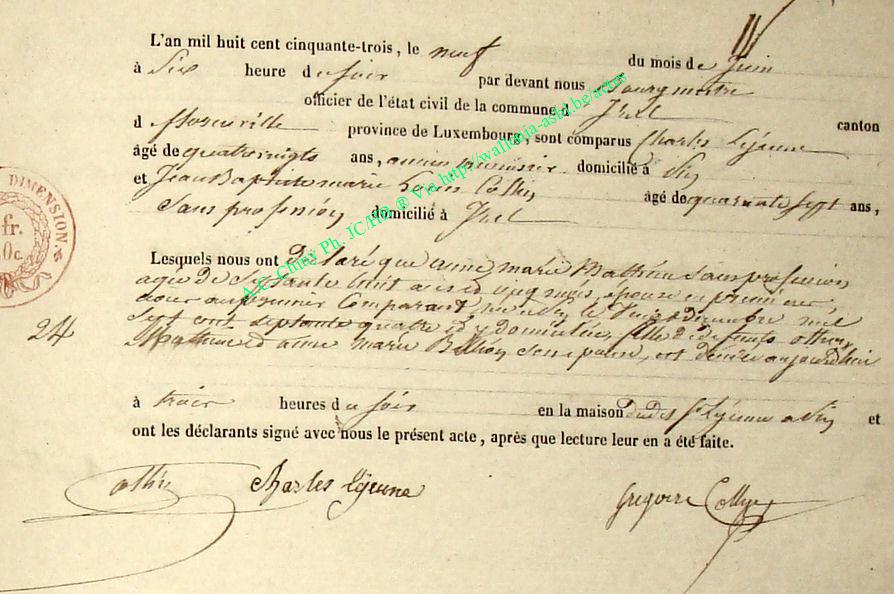 L'an mil huit cent cinquante-trois, le neuf du mois de Juin
à Six heure du soir par devant nous Bourgmestre
officier de l'état civil de la commune d' Izel canton
d florenville province de Luxembourg, sont comparus Charles Lejeune
âgé de quatrevingts ans, ancien domicilié à
et Jean Baptiste marie Louis âgé de quarante Sept ans,
Sans profession domicilié à Izel
Lesquels nous ont Déclaré que anne marie Mathieu Sans profession
agée de Soixante huit ans et cinq mois, épouse en
au premier Comparant, née le Decembre mil
Sept cent Septante quatre et y domiciliée, fille de défunts
24
Mathieu et anne marie Son épouse, est décédée aujourd'hui
à trois heures du soir en la maison dudit Sr Lejeune a et
ont les déclarants signé avec nous le présent acte, après que lecture leur en a été faite.
Charles lejeune Gregoire
DIMENSION.
fr.
0c.
A.C. Chiny Ph. JC/HB ® Via http://wallonia-asbl.be/actes